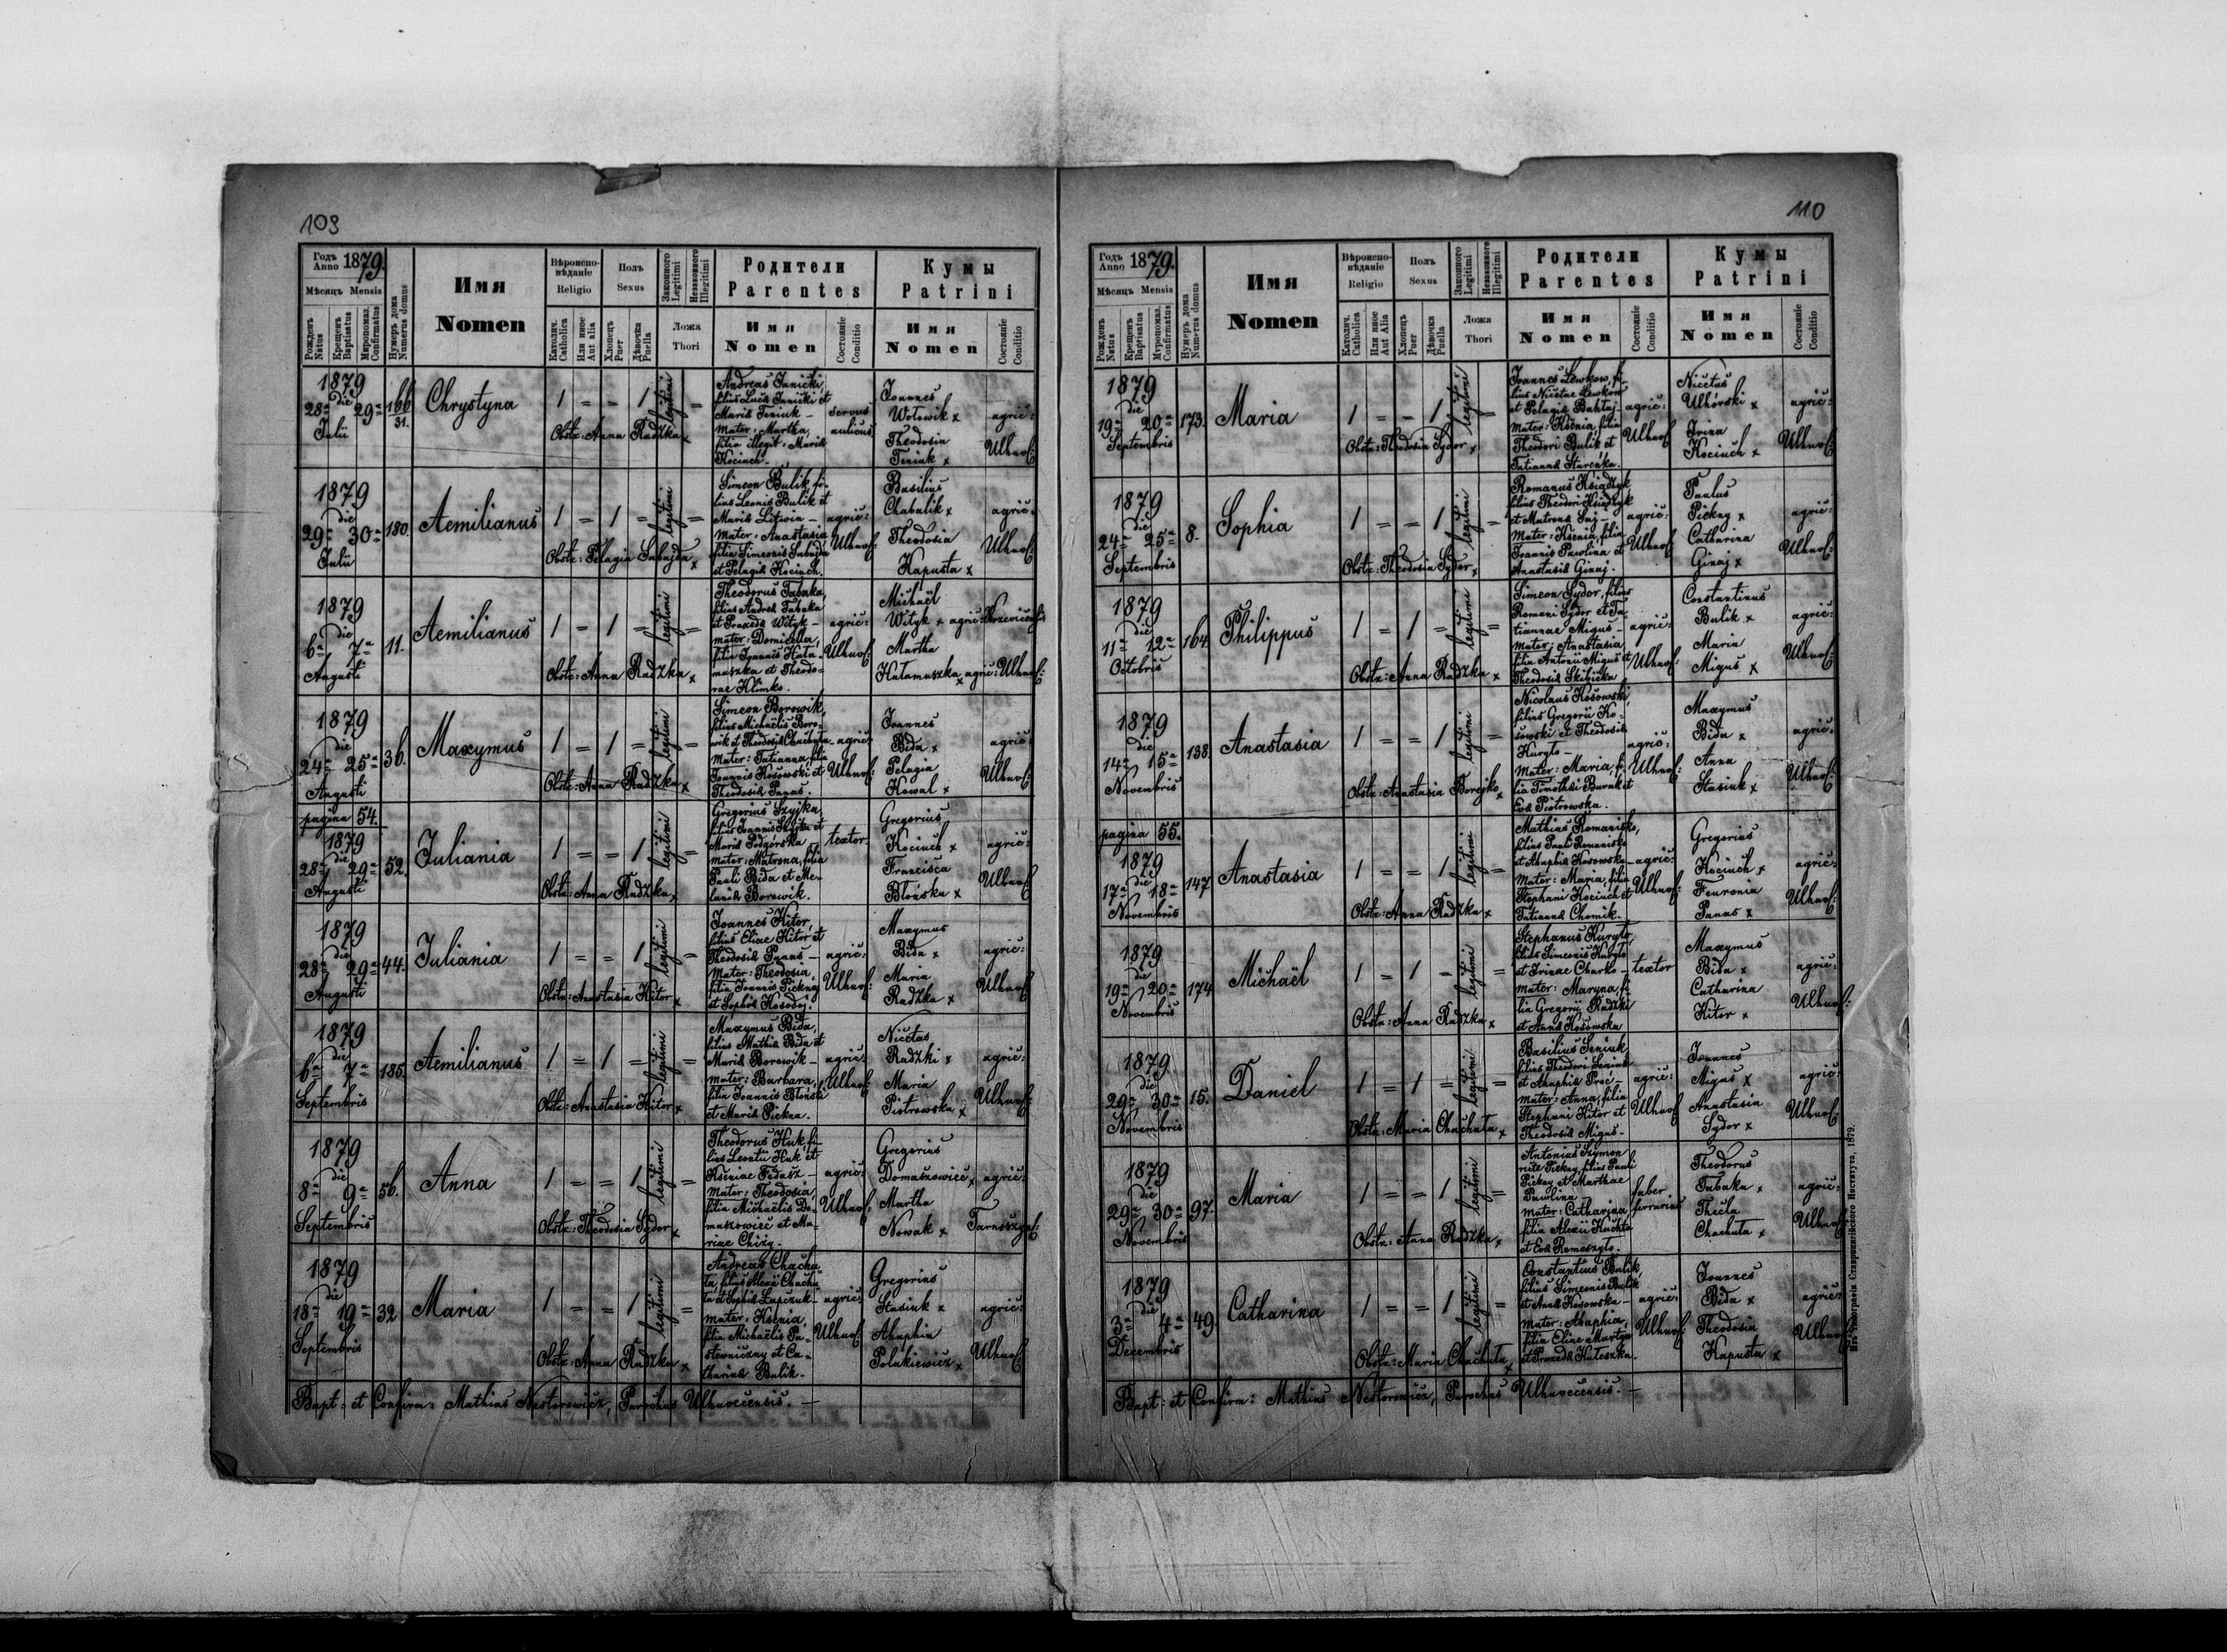 103
Годъ Anno 1879.
Мѣсяцъ Mensis
Рожденъ Natus
Крещенъ Baptisatus
Мѵропомаз. Confirmatus
Нумеръ дома Numerus domus
Имя
Nomen
Вѣроиспо-
вѣданіе
Religio
Католич. Catholica
Или иное Aut alia
Полъ
Sexus
Хлопецъ Puer
Дѣвочка Puella
Законного Legitimi
Незаконного Illegitimi
Ложа
Thori
Родители
Parentes
Имя
Nomen
Состояніе Conditio
Кумы
Patrini
Имя
Nomen
Состояніе Conditio
1879
die
28 29 166
31.
Julii
Chrystyna
1 = = 1 legitimi =
Obstz: Anna Radzka x
Andreas Janicki,
filius Lucæ Janicki et
Mariæ Feniuk –
mater: Martha,
filia illegit: Mariæ
Kociuch.
servus
aulicus
Joannes
Wotowik x
Theodosia
Feniuk x
agric:
Ulhuof:
1879
die
29 30 180.
Julii
Aemilianus
1 = 1 = legitimi =
Obstz: Pelagia Sabajda x
Simeon Bulik, fi-
lius Leonis Bulik et
Mariæ Litwin –
mater: Anastasia
filia Simeonis Sabajda
et Pelagiæ Kociuch.
agric:
Ulhuof:
Basilius
Chabalik x
Theodosia
Kapusta x
agric:
Ulhuof:
1879
die
6 7 11.
Augusti
Aemilianus
1 = 1 = legitimi =
Obstz: Anna Radzka x
Theodorus Tabaka,
filius Andreæ Tabaka
et Praxedæ Wityk –
mater: Domicella,
filia Joannis Hała-
muszka et Theodo-
rae Klimko.
agric:
Ulhuof:
Michaël
Wityk x agric:
Martha
Hałamuszka x agric: Ulhuof:
1879
die
24 25 36.
Augusti
Maxymus
1 = 1 = legitimi =
Obstz: Anna Radzka x
Simeon Borowik,
filius Michaëlis Boro-
wik et Theodosiæ Chachuta –
mater: Tatianna, filia
Joannis Kosowski et
Theodosiæ Panas.
agric:
Ulhuof:
Joannes
Bida x
Pelagia
Kowal x
agric:
Ulhuof:
pagina 54.
1879
die
28 29 52.
Augusti
Juliania
1 = = 1 legitimi =
Obstz: Anna Radzka x
Gregorius Szyjka,
filius Joannis Szyjka et
Mariæ Podgorska
mater: Matrona, filia
Pauli Bida et Me-
laniæ Borowik.
textor
Gregorius
Kociuch x
Francisca
Błońska x
agric:
Ulhuof:
1879
die
28 29 44.
Augusti
Juliania
1 = = 1 legitimi =
Obstz: Anastasia Kitor x
Joannes Kitor,
filius Eliae Kitor et
Theodosiæ Panas –
mater: Theodosia,
filia Joannis Piekny
et Sophiæ Kosodoj.
agric:
Ulhuof:
Maxymus
Bida x
Maria
Radzka x
agric:
Ulhuof:
1879
die
6 7 185.
Septembris
Aemilianus
1 = 1 = legitimi =
Obstz: Anastasia Kitor x
Maxymus Bida,
filius Mathiæ Bida et
Mariæ Borowik –
mater: Barbara,
filia Joannis Błoński
et Mariæ Piekna.
agric:
Ulhuof:
Nicetas
Radzki x
Maria
Piotrowska x
agric:
Ulhuof:
1879
die
8 9 56.
Septembris
Anna
1 = = 1 legitimi =
Obstz: Theodosia Sydor x
Theodorus Huk, fi-
lius Leontii Huk et
Kseniae Fedasz –
mater: Theodosia,
filia Michaëlis Do-
maszowiec et Ma-
riae Chizy.
agric:
Ulhuof:
Gregorius
Domaszowiec x
Martha
Nowak x
agric:
Tarnoszyn:
1879
die
18 19 32
Septembris
Maria
1 = = 1 legitimi =
Obstz: Anna Radzka x
Andreas Chachu-
ta, filius Alexii Chachu-
ta et Sophiæ Łapczuk –
mater: Ksenia,
filia Michaëlis Pa-
stewniczny et Ca-
tharinæ Bulik.
agric:
Ulhuof:
Gregorius
Stasiuk x
Ahaphia
Polakiewicz x
agric:
Ulhuof:
Bapt: et Confirm: Mathias Nestorowicz, Parochus Ulhuvecensis. –
110
Годъ Anno 1879.
Мѣсяцъ Mensis
Рожденъ Natus
Крещенъ Baptisatus
Мѵропомаз. Confirmatus
Нумеръ дома Numerus domus
Имя
Nomen
Вѣроиспо-
вѣданіе
Religio
Католич. Catholica
Или иное Aut Alia
Полъ
Sexus
Хлопецъ Puer
Дѣвочка Puella
Законного Legitimi
Незаконного Illegitimi
Ложа
Thori
Родители
Parentes
Имя
Nomen
Состояніе Conditio
Кумы
Patrini
Имя
Nomen
Состояніе Conditio
1879
die
19 20 173.
Septembris
Maria
1 = = 1 legitimi =
Obstz: Theodosia Sydor x
Joannes Lewkow, fi-
lius Nicetae Lewkow
et Pelagiæ Bahtaj –
mater: Ksenia, filia
Theodori Bulik et
Tatiannæ Starenka.
agric:
Ulhuof:
Nicetas
Ulhórski x
Irina
Kociuch x
agric:
Ulhuof:
1879
die
24 25 8.
Septembris
Sophia
1 = = 1 legitimi =
Obstz: Theodosia Sydor x
Romanus Książdzyk
filius Theodori Książdzyk
et Matronæ Saj –
mater: Ksenia, filia
Joannis Pawlina et
Anastasiæ Ginaj.
agric:
Ulhuof:
Paulus
Piekny x
Catharina
Ginaj x
agric:
Ulhuof:
1879
die
11 12 164
Octobris
Philippus
1 = 1 = legitimi =
Obstz: Anna Radzka x
Simeon Sydor, filius
Romani Sydor et Ta-
tiannae Migus –
mater: Anastasia,
filia Antonii Migus et
Theodosiæ Skibicka
agric:
Ulhuof:
Constantinus
Bulik x
Maria
Migus x
agric:
Ulhuof:
1879
die
14 15 138.
Novembris
Anastasia
1 = = 1 legitimi =
Obstz: Anastasia Borejko x
Nicolaus Kosowski,
filius Gregorii Ko-
sowski et Theodosiæ
Kuryło –
mater: Maria, fi-
lia Timothei Burak et
Evæ Piotrowska.
agric:
Ulhuof:
Maxymus
Bida x
Anna
Stasiuk x
agric:
Ulhuof:
pagina 55.
1879
die
17 18 147
Novembris
Anastasia
1 = = 1 legitimi =
Obstz: Anna Radzka x
Mathias Romanisko,
filius Pauli Romanisko
et Ahaphiæ Kosowska –
mater: Maria, filia
Stephani Kociuch et
Tatiannæ Chomik.
agric:
Ulhuof:
Gregorius
Kociuch x
Feuronia
Panas x
agric:
Ulhuof:
1879
die
19 20 174
Novembris
Michaël
1 = 1 = legitimi =
Obstz: Anna Radzka x
Stephanus Kuryło,
filius Simeonis Kuryło
et Irinae Charko –
mater: Maryna, fi-
lia Gregorii Radzki
et Annæ Kosowska
textor
Maxymus
Bida x
Catharina
Kitor x
agric:
Ulhuof:
1879
die
29 30 15.
Novembris
Daniel
1 = 1 = legitimi =
Obstz: Maria Chachuta x
Basilius Seniuk,
filius Theodori Seniuk
et Ahaphiæ Proć –
mater: Anna, filia
Stephani Kitor et
Theodosiæ Migus.
agric:
Ulhuof:
Joannes
Migus x
Anastasia
Sydor x
agric:
Ulhuof:
1879
die
29 30 97.
Novembris
Maria
1 = = 1 legitimi =
Obstz: Anna Radzka x
Antonius Szymon
recte Piekny, filius Pauli
Piekny et Marthae
Pawlina –
mater: Catharina,
filia Alexii Kuchta
et Evæ Remeszyło.
faber
ferrarius
Theodorus
Tabaka x
Thecla
Chachuta x
agric:
Ulhuof:
1879
die
3 4 49.
Decembris
Catharina
1 = = 1 legitimi =
Obstz: Maria Chachuta x
Constantius Bulik,
filius Simeonis Bulik
et Annæ Kosowska –
mater: Ahaphia,
filia Eliae Martyn
et Praxedæ Kułeszka.
agric:
Ulhuof:
Joannes
Bida x
Theodosia
Kapusta x
agric:
Ulhuof:
Bapt: et Confirm: Mathias Nestorowicz, Parochus Ulhuvecensis. –
Изъ типографіи Ставропигійского Института, 1879.